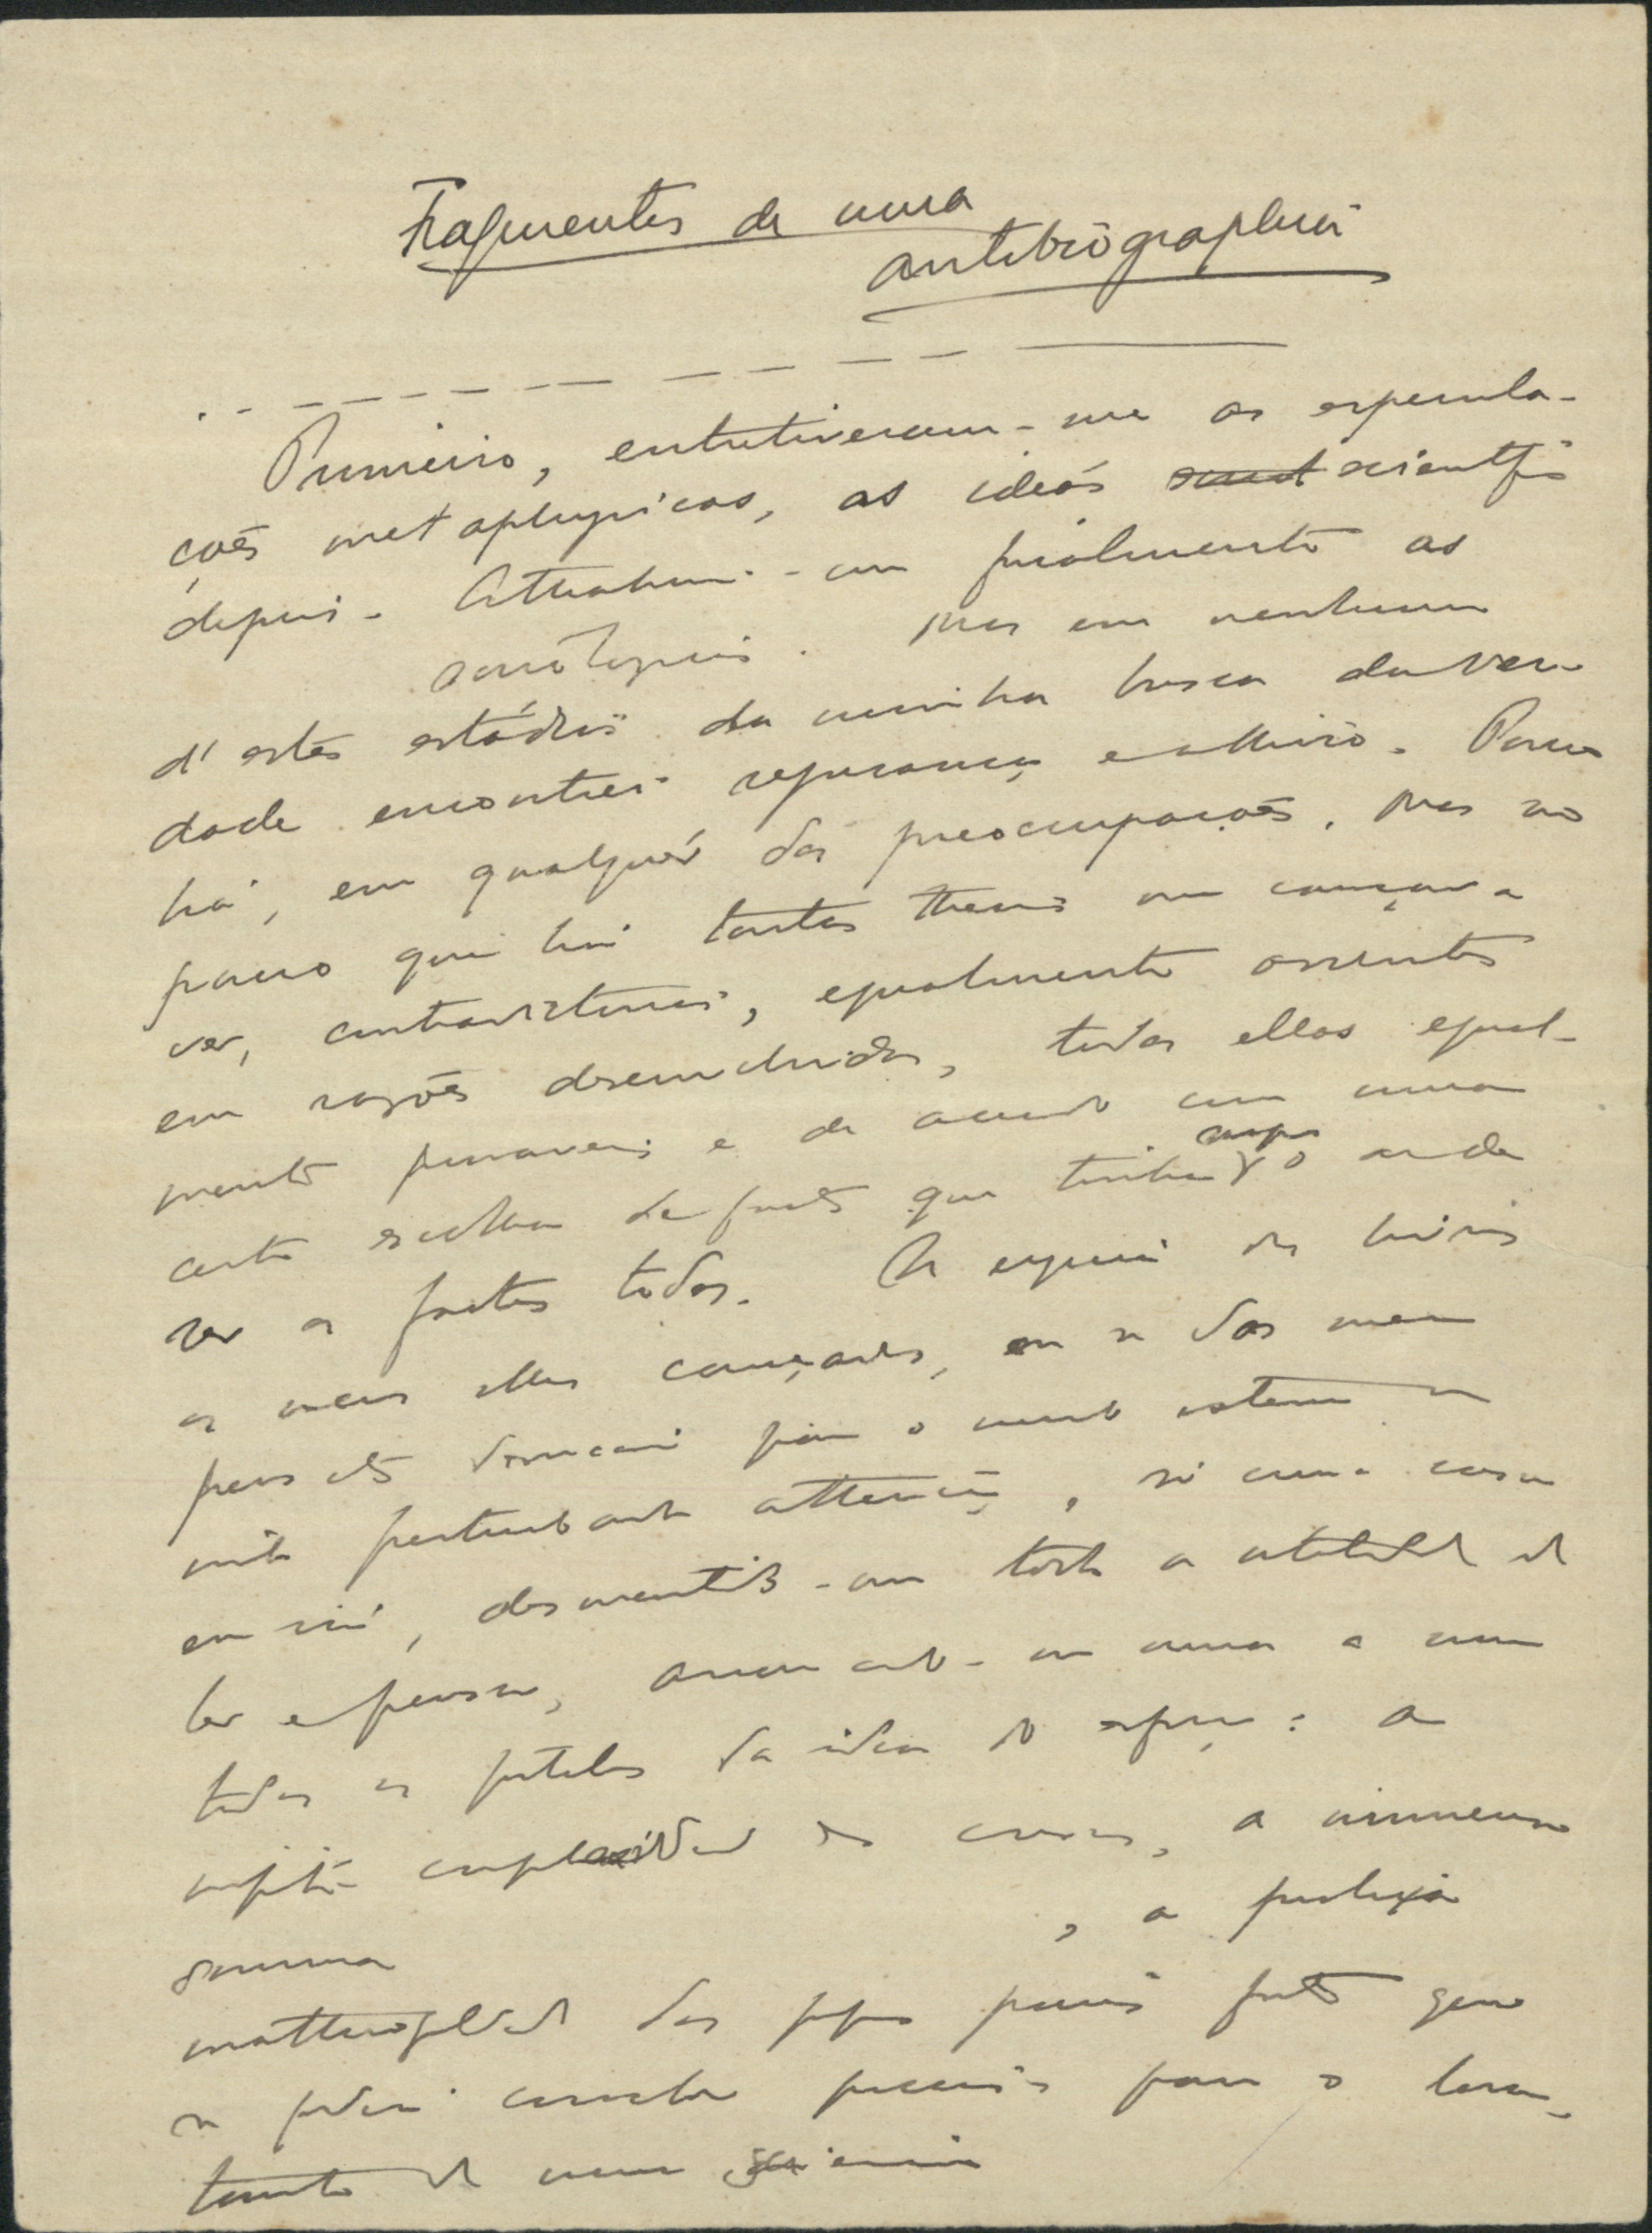 Fragmentos de uma
autobiographia
Primeiro, entretiveram-me as especula-
ções metaphysicas, as ideas scientifi
depois. Attrahiram-me finalmente as
sociologicas. Mas em nenhum
d'estes estádios da minha busca da ver-
dade encontrei segurança e allivio. Pouco
lia, em qualquer das preocupações. Mas no
pouco que lia tantas theorias me cançava
ver, contradictorias, egualmente assentes
em razões desenvolvidas, todas ellas egual-
mente provaveis e de accordo com uma
certa escolha de factos que tinha sempre o ar de
ser os factos todos. Se erguia dos livros
os meus olhos cançados, ou se dos meus
pensamentos desviava para o mundo externo a
minha perturbada attenção, só uma cousa
eu via, desmentindo-me toda a utilidade de
ler e pensar, arrancando-me uma a uma
todas as petalas da idea do esforço: a
infinita complexidade das cousas, a immensa
somma , a prolixa
inattingibilidade dos proprios poucos factos que
se poderiam conceber precisos para o levan-
tamento de uma sciencia